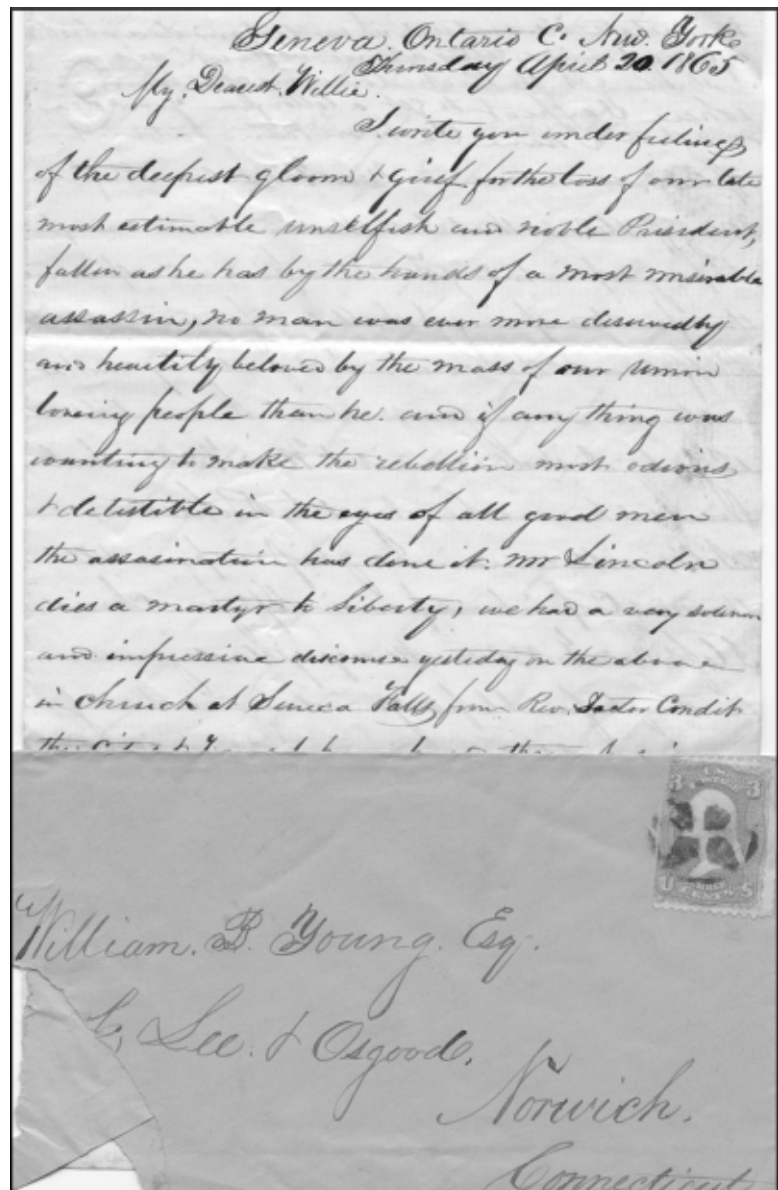 Geneva. Ontario C. New. York
Thursday April 20. 1865
My. Dearest. Willie.
I write you under feelings
of the deepest gloom & grief for the loss of our late
most estimable unselfish and noble President,
fallen as he has by the hands of a most miserable
assassin, no man was ever more deservedly
and heartily beloved by the mass of our Union
loving people than he. and if any thing was
wanting to make the rebellion most odious
& detestible in the eyes of all good men
the assasination has done it. Mr Lincoln
dies a martyr to Liberty, we had a very solemn
and impressive discourse yesteday on the above
in church at Seneca Falls, from Rev. Doctor Condit
3 3
U CENTS S
William. B. Young. Esq.
Lee. & Osgood.
Norwich.
Connecticut